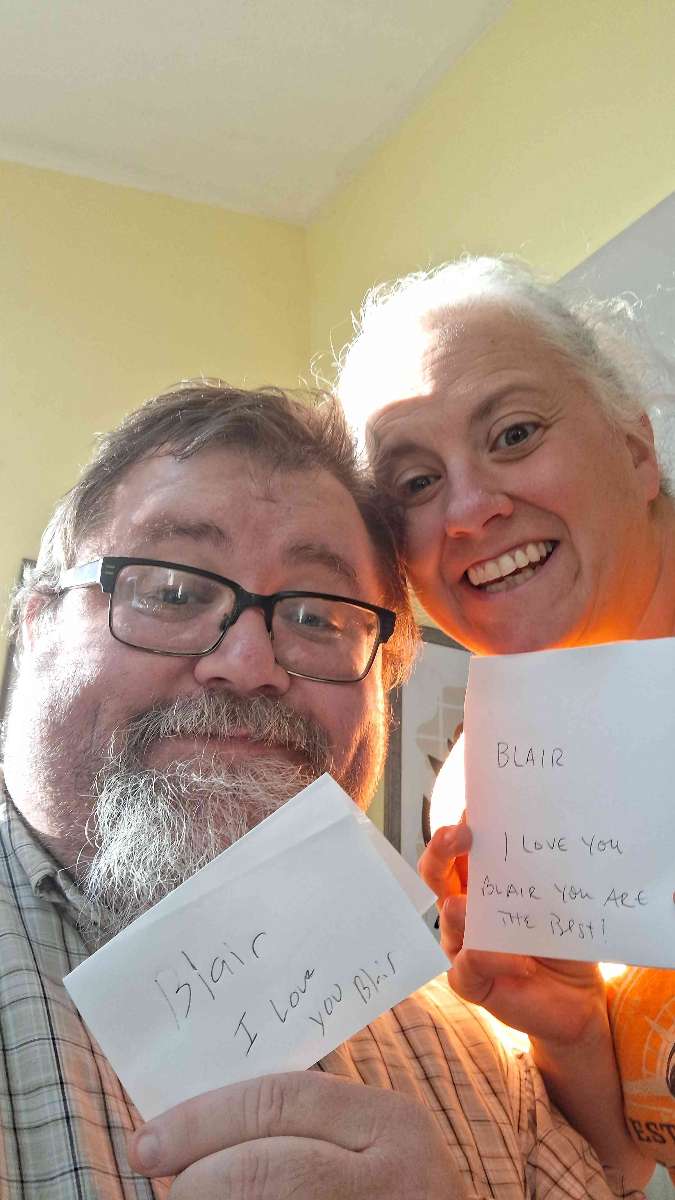 Blair
I Love
you Blair
BLAIR
I LOVE YOU
BLAIR YOU ARE
THE BEST!
EST